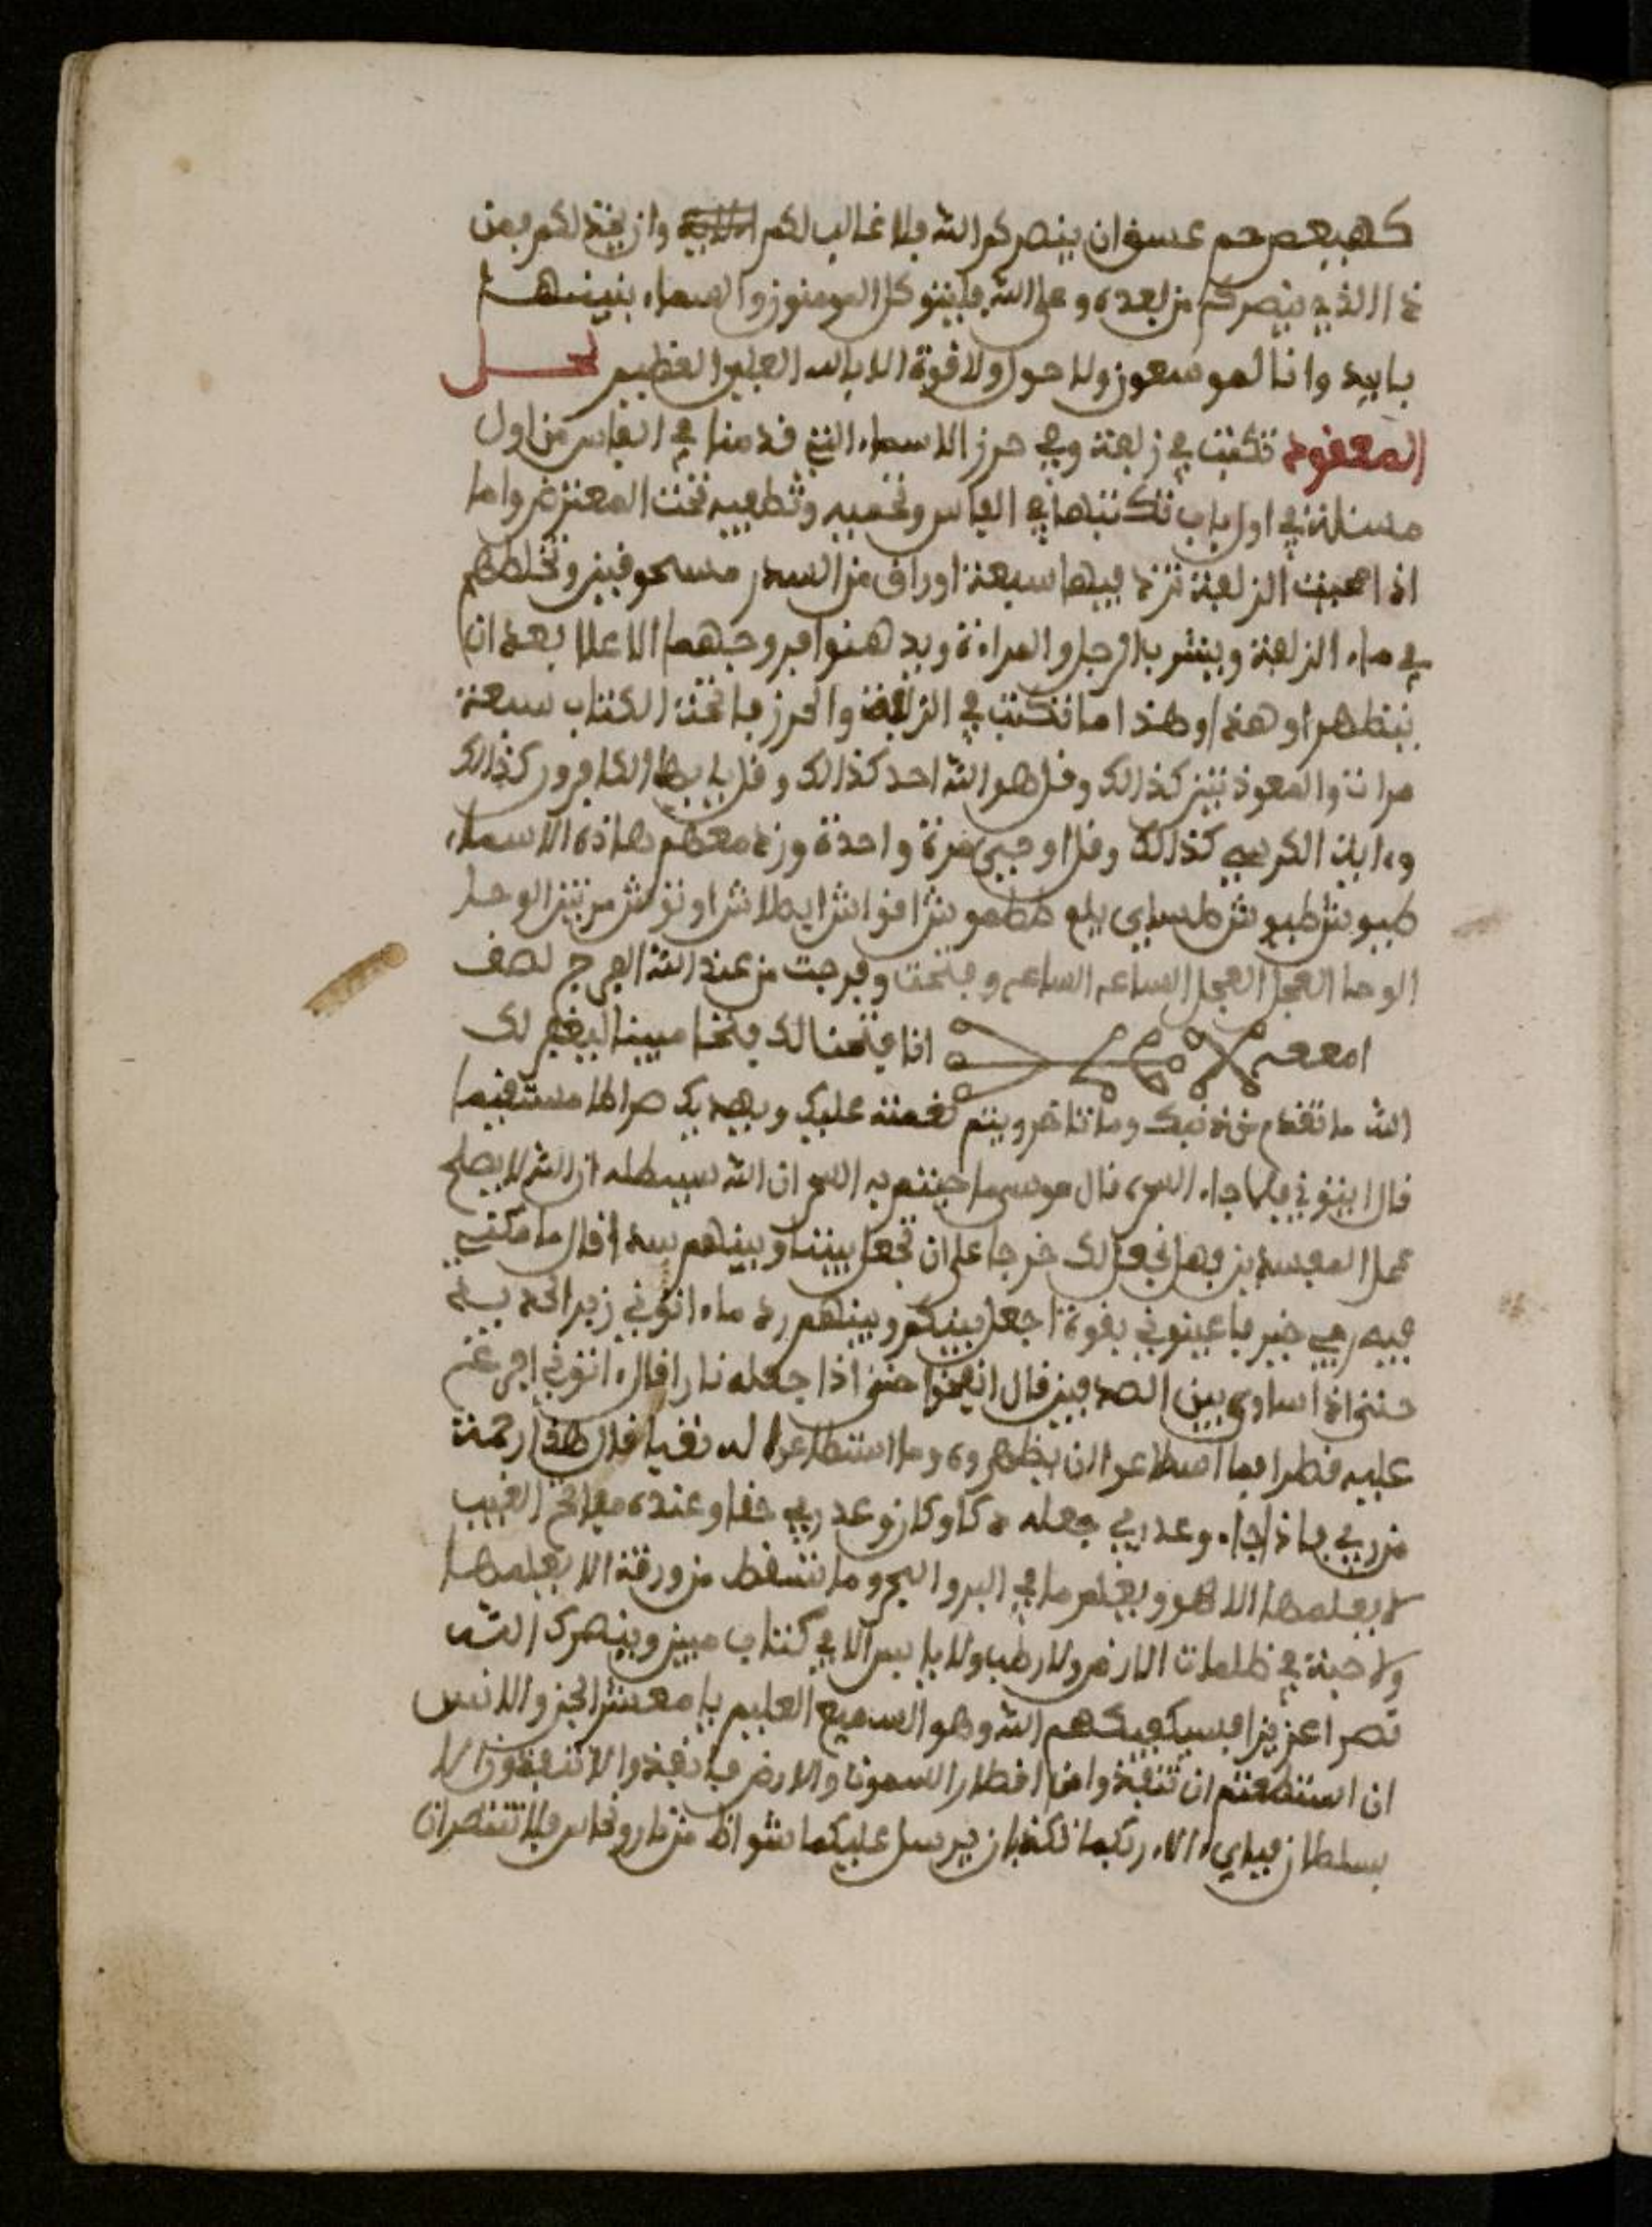 كهيعص حم عسق ان ينصركم الله فلا غالب لكم وان يخذلكم فمن
ذا الذي ينصركم من بعده وعلى الله فليتوكل المومنون والسماء بنينها
باييد وانا لموسعون ولا حول ولا قوة الا بالله العلي العظيم لحل
المعقود تكتب في زلافة وفي حرز الاسماء التي قدمنا في الفاس من اول
مسئلة في اول باب تكتبها في الفاس وتحميه وتطفيه تحت المعترض واما
اذا محيت الزلافة تزد فيها سبعة اوراق من السدر مسحوقين وتخلطهم
في ماء الزلافة ويشرب الرجل والمراة ويدهنوا فروجهما الاعلا بعد ان
يتطهروا وهذا ما تكتب في الزلافة والحرز فاتحة الكتاب سبعة
مرات والمعوذتين كذالك وقل هو الله احد كذالك وقل يايها الكافرون كذالك
وءاية الكرسي كذالك وقل اوحي مرة واحدة وزد معهم هاذه الاسماء
الوحا العجل العجل الساعه الساعه وفتحت وفرجت من عند الله الفرج
انا فتحنا لك فتحا مبينا ليغفر لك
الله ما تقدم من ذنبك وما تاخر ويتم نعمته عليك ويهديك صراطا مستقيما
قال ايتوني فلما جاء السحرة قال موسى ما جيتم به السحر ان الله سيبطله ان الله لا يصلح
عمل المفسدين فهل نجعل لك خرجا على ان تجعل بيننا وبينهم سدا قال ما مكني
فيه ربي خير فاعينوني بقوة اجعل بينكم وبينهم ردماء اتوني زبر الحديد
حتى اذا ساوى بين الصدفين قال انفخوا حتى اذا جعله نارا قال ءاتوني افرغ
عليه قطرا فما اسطاعوا ان يظهروه وما استطاعوا له نقبا قال هذا رحمة
من ربي فاذا جاء وعد ربي جعله دكا وكان وعد ربي حقا وعنده مفاتح الغيب
لا يعلمها الا هو ويعلم ما في البر والبحر وما تسقط من ورقة الا يعلمها
ولا حبة في ظلمات الارض ولا رطب ولا يابس الا في كتاب مبين وينصرك الله
نصرا عزيزا فسيكفيكهم الله وهو السميع العليم يا معشر الجن والانس
ان استطعتم ان تنفذوا من اقطار السموات والارض فانفذوا لا تنفذون الا
بسلطان فباي ءالاء ربكما تكذبان يرسل عليكما شواظ من نار ونحاس فلا تنتصران